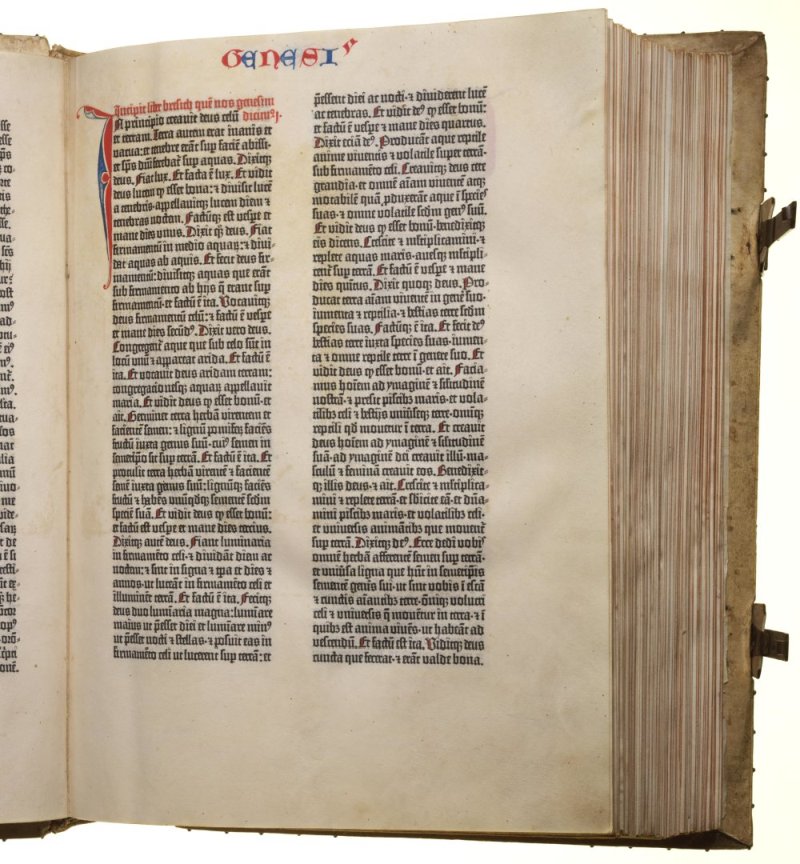 GENESIS
Incipit liber bresith quē nos genesim
dicim⁹
In principio creavit deus celū
et terram. Terra autem erat inanis et
vacua: et tenebre erāt sup faciē abissi:
et sp̄s dn̄i ferebat̄ sup aquas. Dixitq̄
deus. Fiat lux. Et facta ē lux. Et vidit
deus lucem q̄ esset bona: & divisit lucē
a tenebris. appellavitq̄ lucem diem &
tenebras noctem. Factūq̄ est vespe et
mane dies unus. Dixit q̄ʒ deus. Fiat
firmamentū in medio aquarū: & divi-
dat aquas ab aquis. Et fecit deus fir-
mamentū: divisitq̄ aquas que erāt
sub firmamento ab hijs q̄ erant sup
firmamentū: et factū ē ita. Vocavitq̄
deus firmamentū celū: & factū ē vespe
et mane dies secūd⁹. Dixit vero deus.
Congregent̄ aque que sub celo sūt in
locū unū & appareat arida. Et factū ē
ita. Et vocavit deus aridam terram:
congregacionesq̄ aquarū appellavit
maria. Et vidit deus q̄ esset bonū· et
ait. Germinet terra herbā virentem et
facientē semen: & lignū pomiferū faciēs
fructū iuxta genus suū· cui⁹ semen in
semetip̄o sit sup terrā. Et factū ē ita. Et
protulit terra herbā virentē & facientē
semē iuxta genus suū: lignūq̄ faciēs
fructū & habēs unūqdq̄ sementē sc̄dm
speciē suā. Et vidit deus q̄ esset bonū:
et factū est vespe et mane dies tercius.
Dixitq̄ autē deus. Fiant luminaria
in firmamēto celi· & dividāt diem ac
noctem: & sint in signa & tp̄a et dies &
annos· ut luceāt in firmamēto celi et
illuminēt terrā. Et factū ē ita. Fecitq̄
deus duo luminaria magna: luminare
maius ut p̄esset diei et luminare min⁹
ut p̄esset nocti & stellas· & posuit eas in
firmamēto celi ut lucerent sup terrā: et
p̄essent diei ac nocti· & dividerent lucē
ac tenebras. Et vidit de⁹ q̄ esset bonū:
et factū ē vespe & mane dies quartus.
Dixit eciā de⁹. Producāt aque reptile
anime viventis & volatile super terrā·
sub firmamēto celi. Creavitq̄ deus cete
grandia· et omnē aīam viventē atq̄
motabilē quā p̄duxerāt aque ī species
suas· & omne volatile sc̄dm gen⁹ suū.
Et vidit deus q̄ esset bonū· benedixitq̄
eis dicens. Crescite & mltiplicamini· &
replete aquas maris· avesq̄ mltipli-
cent̄ sup terrā. Et factū ē vespe & mane
dies quītus. Dixit quoq̄ deus. Pro-
ducat terra aīam viventē in genē suo·
iumenta & reptilia· & bestias terre sc̄dm
species suas. Factūq̄ ē ita. Et fecit de⁹
bestias terre iuxta species suas· iumen-
ta & omne reptile terre ī genere suo. Et
vidit deus q̄ esset bonū· et ait. Facia-
mus hoīem ad ymaginē & silitudinē
nostrā· & presit piscibʒ maris· et vola-
tilibʒ celi & bestijs univseq̄ terre· omniq̄
reptili qd movetur ī terra. Et creavit
deus hoīem ad ymaginē & silitudinē
suā· ad ymaginē dei creavit illū· ma-
sculū & feminā creavit eos. Benedixit-
q̄ illis deus· & ait. Crescite & mltiplica-
mini & replete terrā· et sbicite eā· et dn̄a-
mini piscibʒ maris· et volatilibʒ celi·
et universis animātibʒ que moventur
sup terrā. Dixitq̄ de⁹. Ecce dedi vobis
omnē herbā afferentē semen sup terrā·
et univsa ligna que hn̄t in semetip̄is
sementē genis sui· ut sint vobis ī escā
& cunctis aīantibʒ terre· omniq̄ volucri
celi & universis q̄ moventur in terra· & ī
quibʒ est anima vivēs· ut habeāt ad
vescendū. Et factū est ita. Viditq̄ deus
cuncta que fecerat· & erāt valde bona.